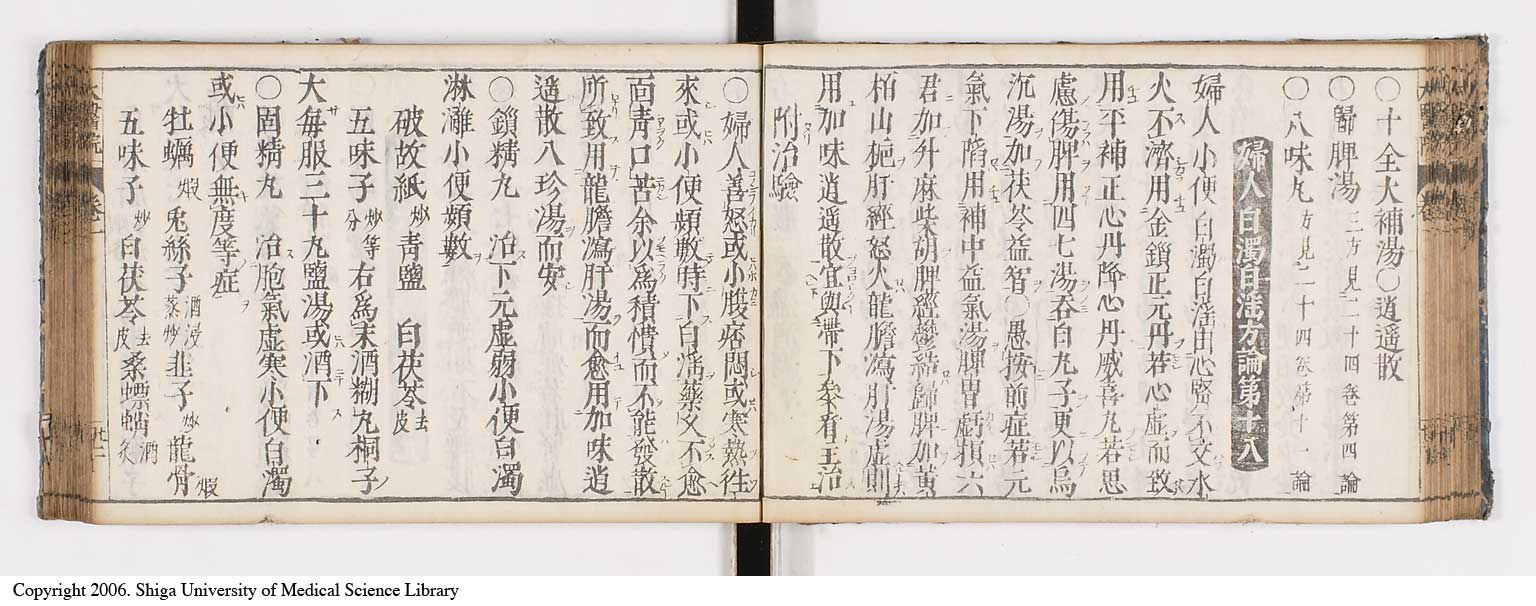 〇十全大補湯〇逍遥散
〇歸脾湯 三方見二十四卷第四論
〇八味丸 方見二十四卷第十一論
婦人白濁白淫方論第十八
婦人小便白濁白淫由心腎不交水
火不濟用金鎖正元丹若心虚而致
用平補正心丹降心丹威喜丸若思
慮傷脾用四七湯吞白丸子更以烏
沉湯加茯苓益智〇愚按前症若元
氣下陷用補中益氣湯脾胃虧損六
君加升麻柴胡脾經鬱結歸脾加黄
栢山梔肝經怒火龍膽瀉肝湯虚則
用加味逍遥散宜與帶下參看主治
附治驗
〇婦人善怒或小腹痞悶或寒熱徃
來或小便頻數時下白淫藥久不愈
面青口苦余以爲積憤而不能發散
所致用龍膽瀉肝湯而愈用加味逍
遥散八珍湯而安
〇鎖精丸 治下元虚弱小便白濁
淋灕小便頻數
破故紙炒 青鹽 白茯苓去皮
五味子炒等分 右爲末酒糊丸桐子
大每服三十丸鹽湯或酒下
〇固精丸 治胞氣虚寒小便白濁
或小便無度等症
牡蠣煅 兎絲子酒浸蒸炒 韭子炒 龍骨煅
五味子炒 白茯苓去皮 桑螵蛸酒炙
Copyright 2006. Shiga University of Medical Science Library